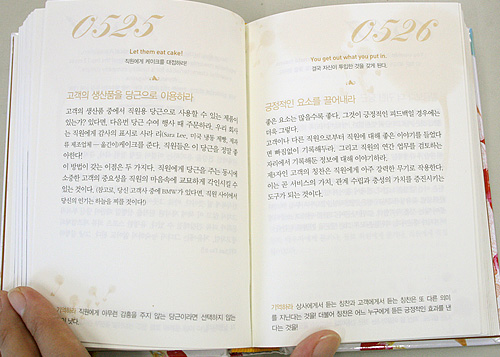 0525
Let them eat cake!
직원에게 케이크를 대접하라!
고객의 생산품을 당근으로 이용하라
고객의 생산품 중에서 직원용 당근으로 사용할 수 있는 제품이
있는가? 있다면, 다음번 당근 수여 행사 때 주문하라. 우리 회사
는 직원에게 감사의 표시로 사라 리(Sara Lee, 미국 냉동 제빵, 제과
류 제조업체 — 옮긴이)케이크를 준다. 직원들은 이 당근을 정말 좋
아한다!
이 방법이 갖는 이점은 두 가지다. 직원에게 당근을 주는 동시에
소중한 고객의 중요성을 직원의 마음속에 교묘하게 각인시킬 수
있는 것이다. (참고로, 당신 고객사 중에 BMW가 있다면, 직원 사이에서
당신의 인기는 하늘을 찌를 것이다!)
기억하라 직원에게 아무런 감흥을 주지 않는 당근이라면 선택하지 않는
낫다.
0526
You get out what you put in.
결국 자신이 투입한 것을 갖게 된다.
긍정적인 요소를 끌어내라
좋은 요소는 많을수록 좋다. 그것이 긍정적인 피드백일 경우에는
더욱 그렇다.
고객이나 다른 직원으로부터 직원에 대해 좋은 이야기를 들었다
면 빠짐없이 기록해두라. 그리고 직원의 연간 업무를 검토하는
자리에서 기록해둔 정보에 대해 이야기하라.
제3자인 고객의 칭찬은 직원에게 아주 강력한 무기로 작용한다.
이는 곧 서비스의 가치, 관계 수립과 충성의 가치를 증진시키는
도구가 되는 것이다.
기억하라 상사에게서 듣는 칭찬과 고객에게서 듣는 칭찬은 또 다른 의미
를 지닌다는 것을! 더불어 칭찬은 어느 누구에게 듣든 긍정적인 효과를 낸
다는 것을!